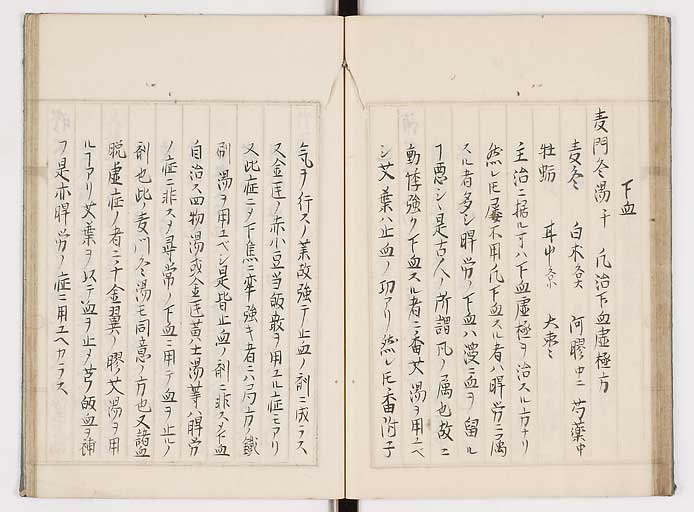 下血
麦門冬湯 千 凡治下血虚極方
麦冬 白朮各大 阿膠中 芍薬中
牡蛎 大棗
主治ニ据ルヿハ下血虚極ヲ治スル方ナリ
然レ𪜈屡不用凡下血スル者ハ脾労ニ属
スル者多シ脾労ノ下血ハ ニ血ヲ留ル
ヿ悪シヽ是古人ノ所謂 ノ属也故ニ
動悸強ク下血スル者ニ香艾湯ヲ用ユベ
シ艾葉ハ止血ノ功アリ然レ𪜈香附子
気ヲ行スノ薬故強テ止血ノ剤ニ成ラス
又金匱ノ赤小豆当皈散ヲ用ユル症モアリ
又此症ニ〆下焦ニ牽強キ者ニハ局方ノ鐵
刷湯ヲ用ユベシ是皆止血ノ剤ニ非ス〆下血
自治ス四物湯或金匱黄土湯等ハ脾労
ノ症ニ非ス〆尋常ノ下血ニ用テ血ヲ止ルノ
剤也此麦門冬湯モ同意ノ方也又諸血
脱虚症ノ者ニ千金翼ノ膠艾湯ヲ用
ルヿアリ艾葉ヲ以テ血ヲ止メ芎皈血ヲ補
フ是亦脾労ノ症ニ用ユヘカラス